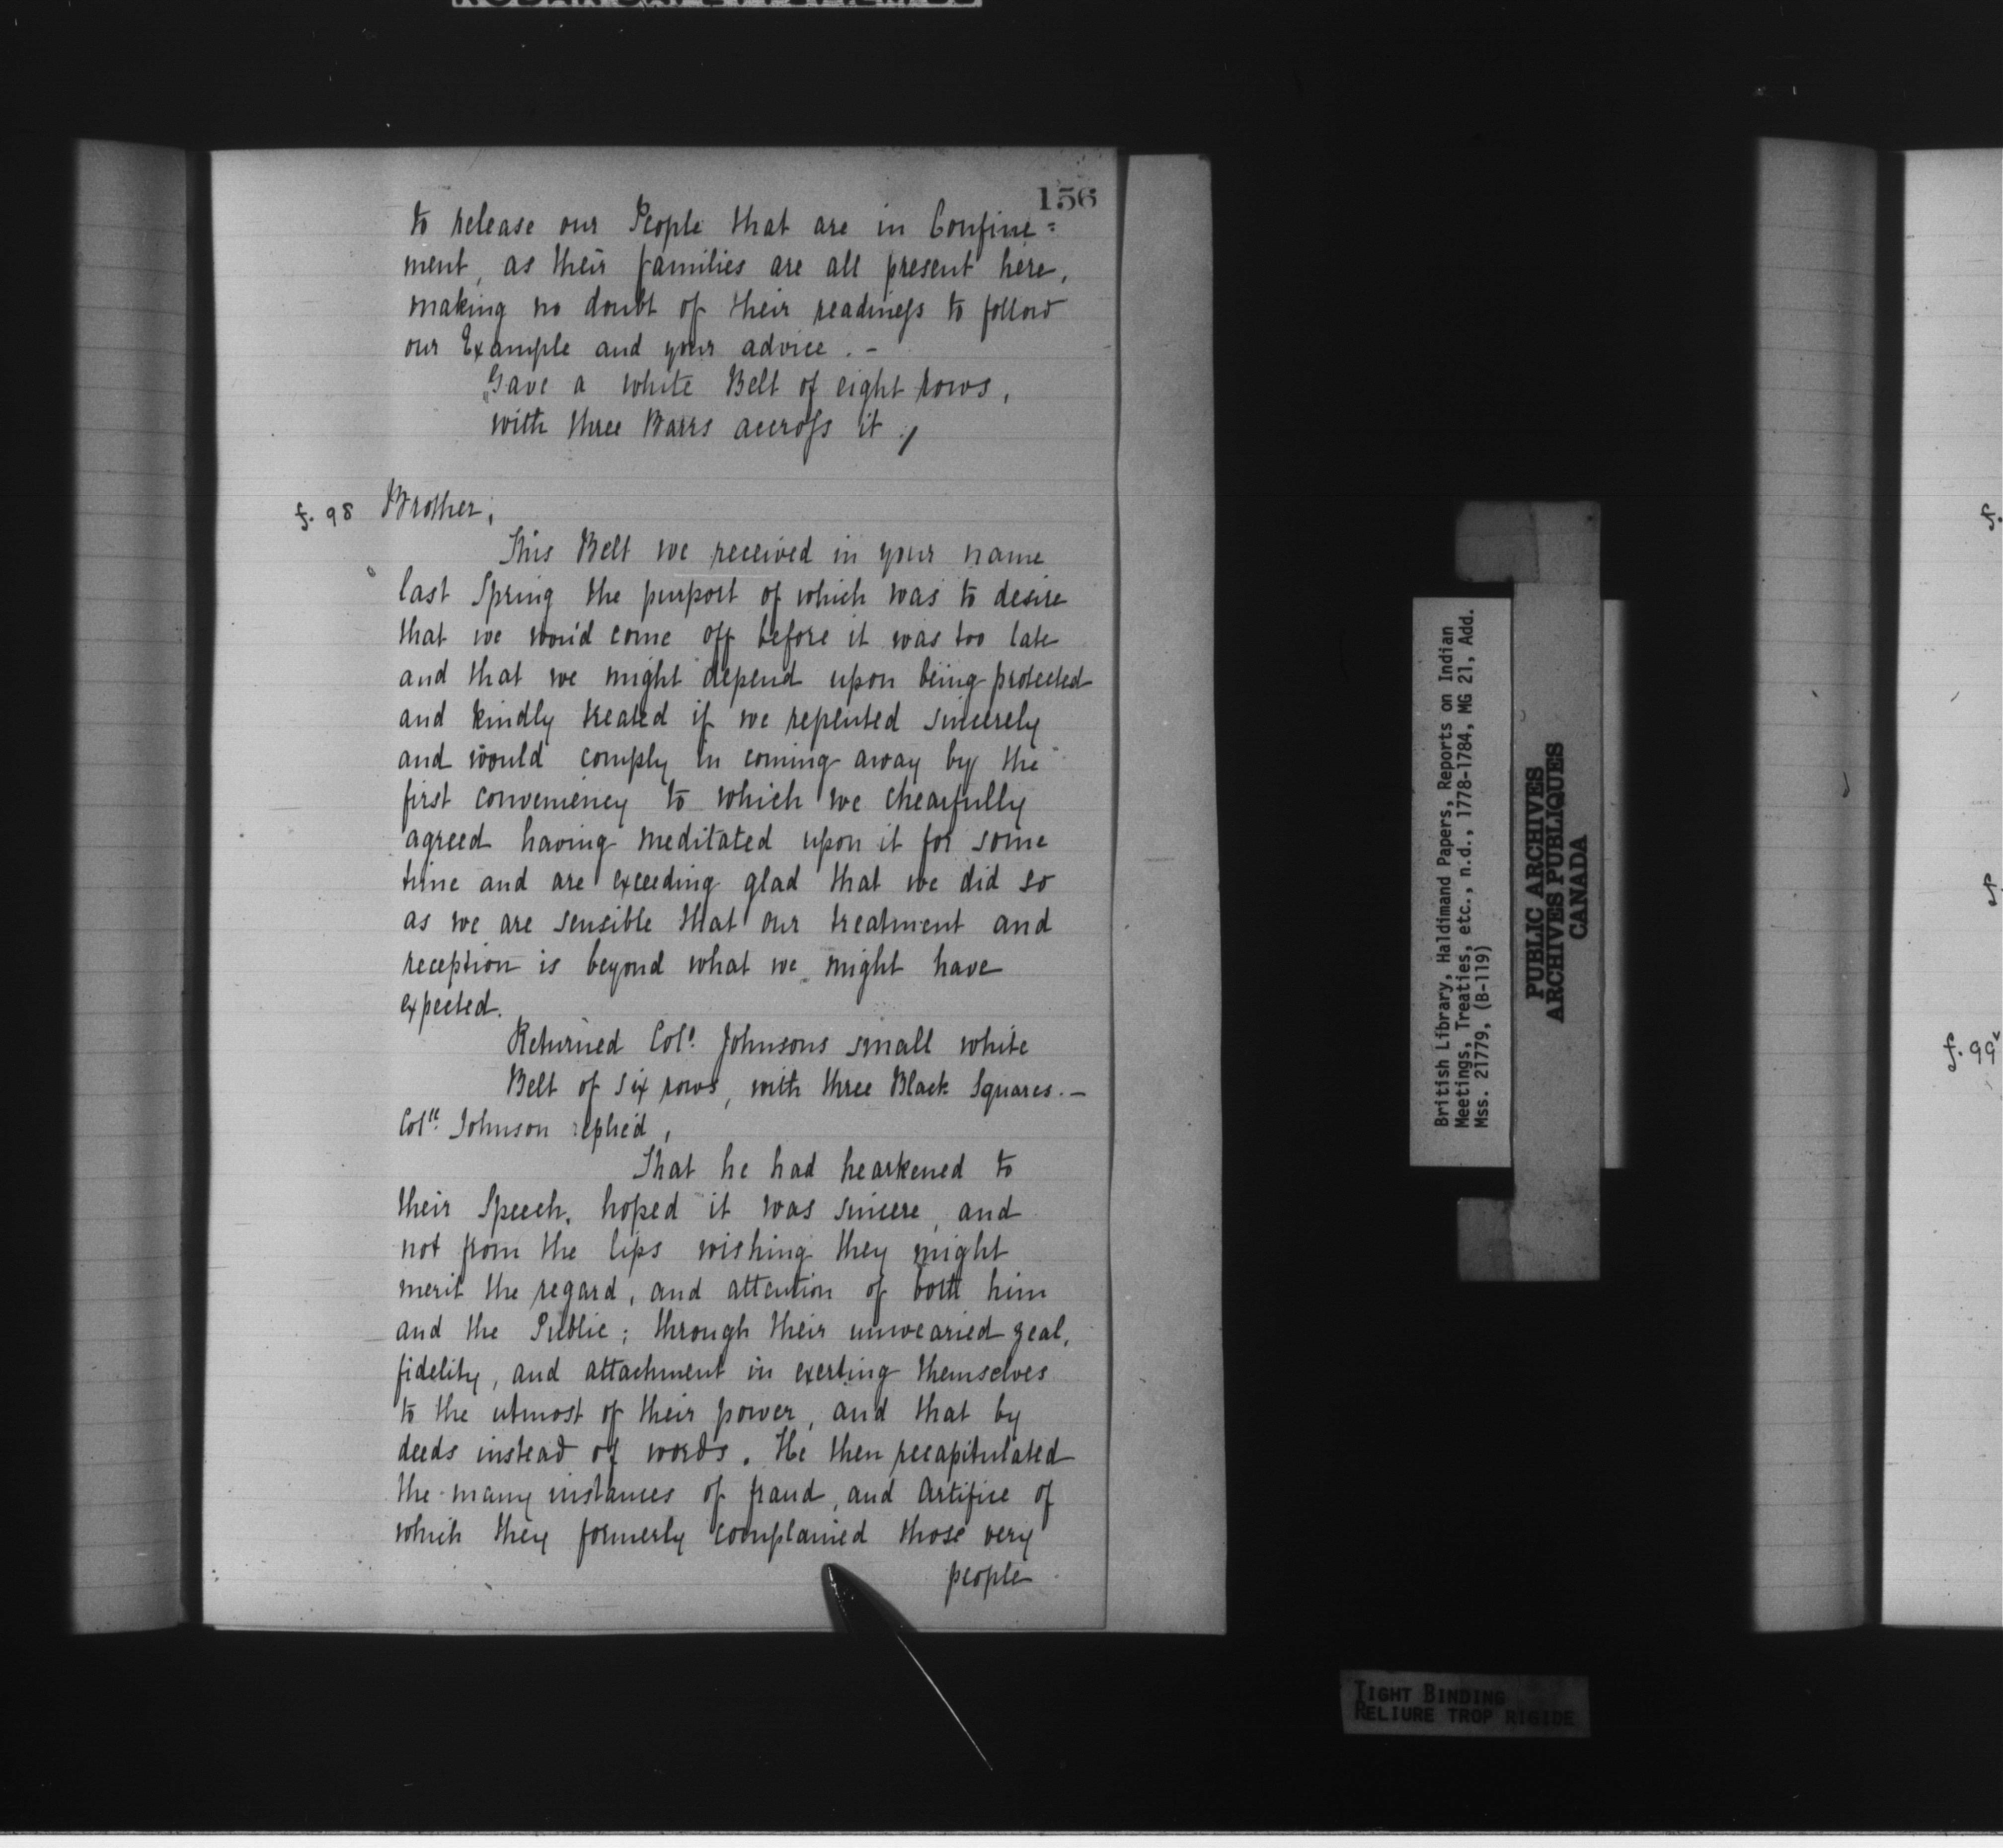 156
to release our People that are in Confine=
ment, as their families are all present here,
making no doubt of their readiness to follow
our Example and your advice. -
Gave a white Belt of eight rows,
with three Barrs accross it /
f. 98 Brother,
This Belt we received in your name
last Spring the purport of which was to desire
that we wou'd come off before it was too late
and that we might depend upon being protected
and kindly treated if we repented sincerely
and would comply in coming away by the
first conveniency to which we chearfully
agreed having meditated upon it for some
time and are exceeding glad that we did so
as we are sensible that our treatment and
reception is beyond what we might have
expected.
Returned Col! Johnsons small white
Belt of six rows, with three Black Squares. -
Colll. Johnson replied,
That he had hearkened to
their Speech, hoped it was sincere, and
not from the lips wishing they might
merit the regard, and attention of both him
and the Public; through their unwearied zeal,
fidelity, and attachment in exerting themselves
to the utmost of their power, and that by
deeds instead of words. He then recapitulated
the many instances of fraud, and Artifice of
which they formerly complained those very
people
British Library, Haldimand Papers, Reports on Indian
Meetings, Treaties, etc., n.d., 1778-1784, MG 21, Add.
Mss. 21779, (B-119)
PUBLIC ARCHIVES
ARCHIVES PUBLIQUES
CANADA
TIGHT BINDING
RELIURE TROP RIGIDE
f.
f.
f. 99v